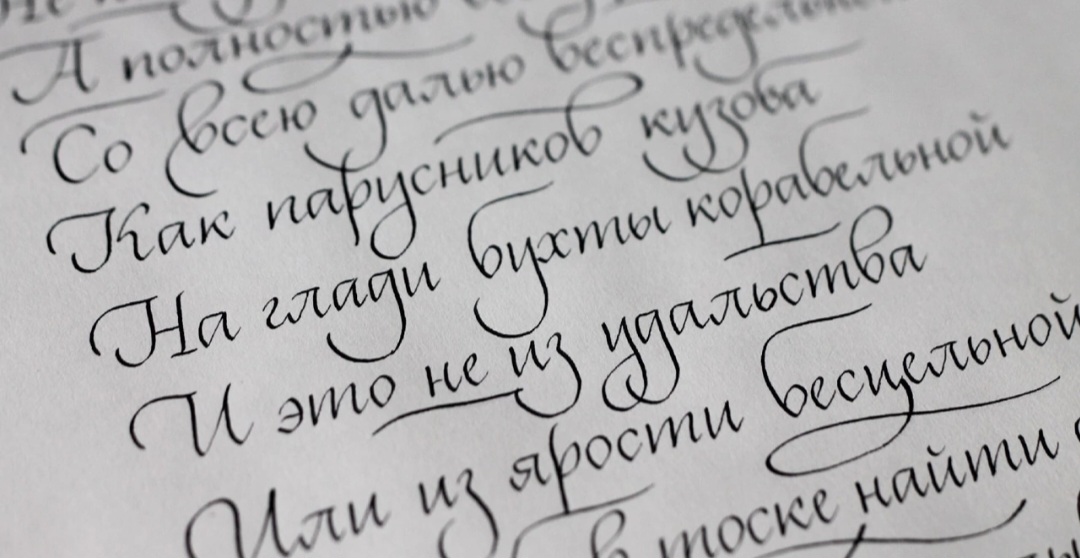 А полностью
Со всею далью беспредельной
Как парусников кузова
На глади бухты корабельной
И это не из удальства
Или из ярости бесцельной
в тоске найти